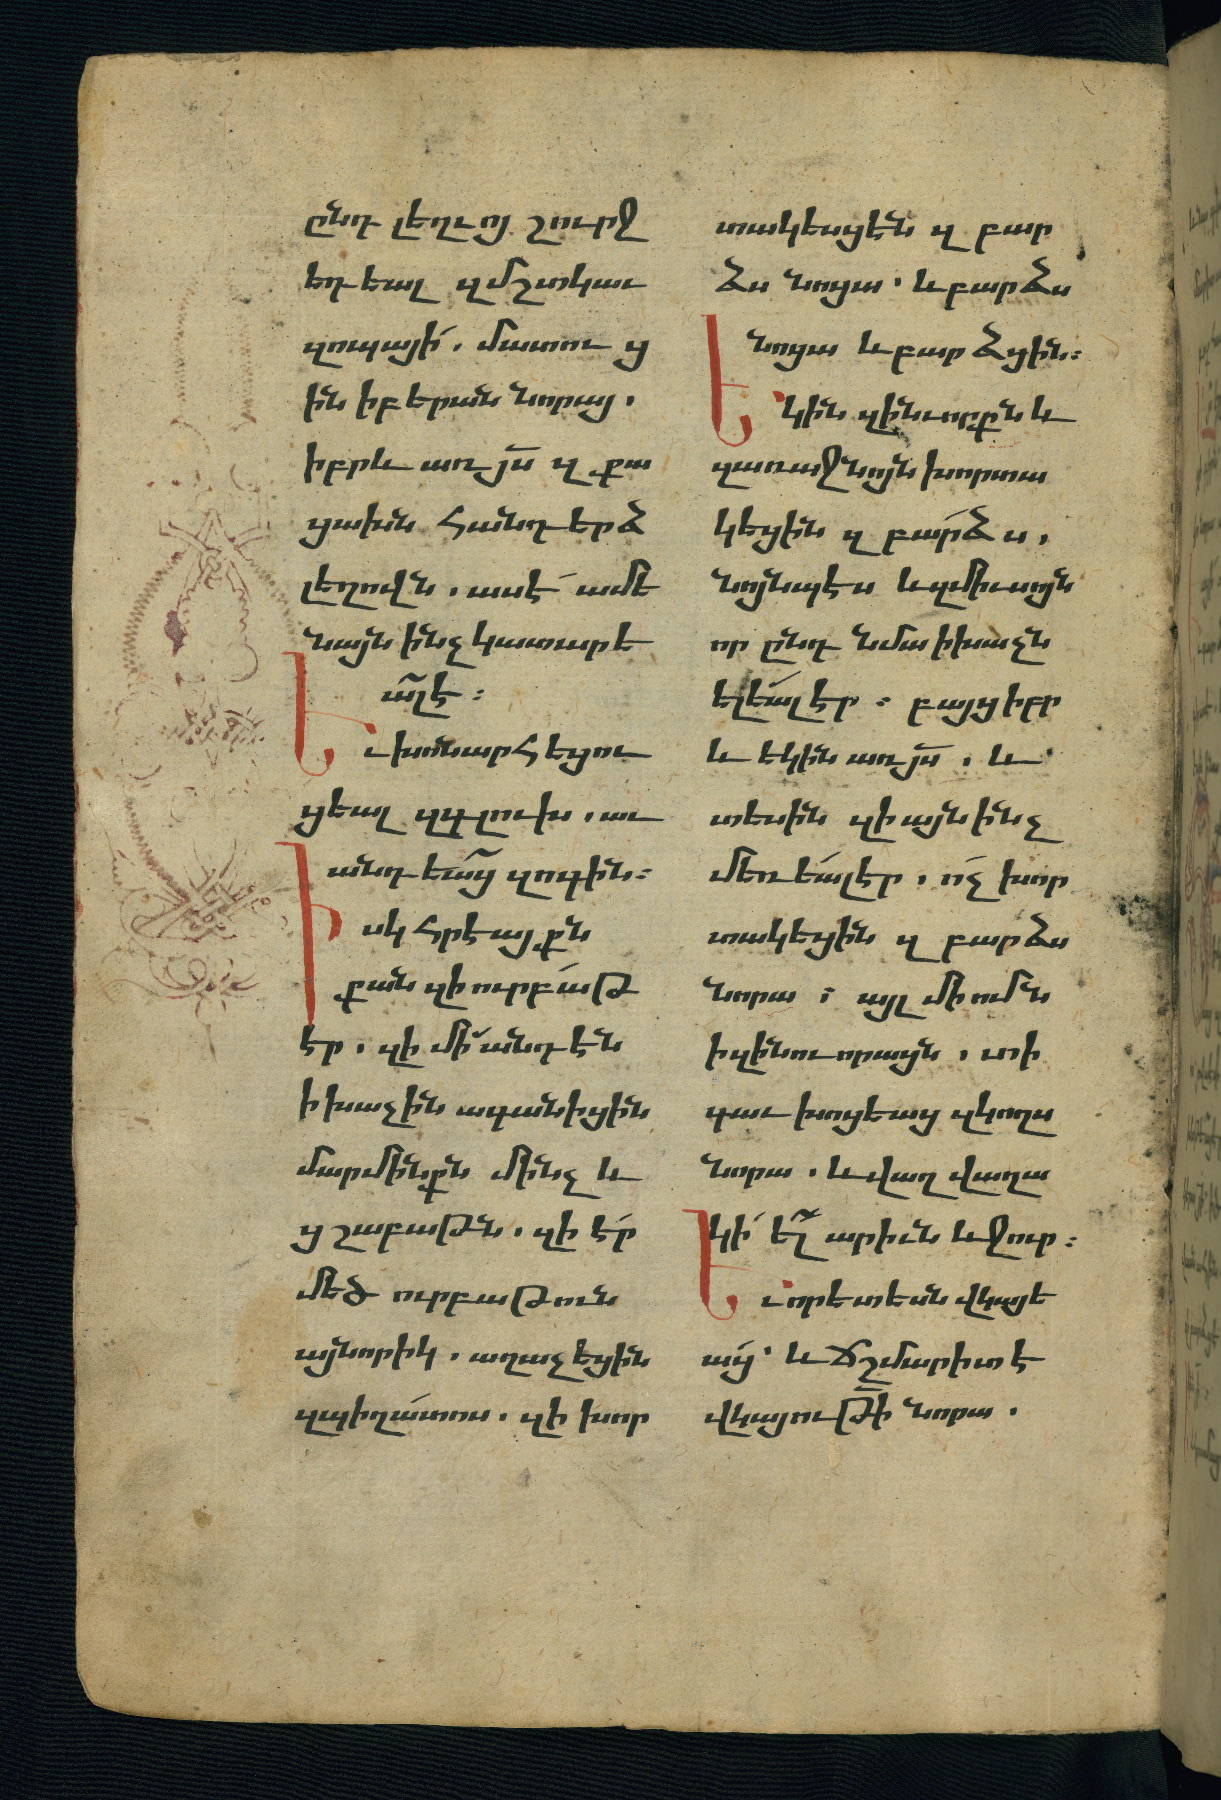 ընդ լեղւոյ շուրջ
եդեալ զմշտկաւ
զոպայի՛. մատու ց
ին ի բերան նորայ.
իբրև առ յս̅ զ քա
ցախն հանդերձ
լեղովն. ասէ՛ ամե
նայն ինչ կատարե
ա̅լ է։
Եւ խոնարհեցու
ցեալ զգլուխ. աւ
անդեա̅ց զոգին։
Իսկ հրէայքն
քան զի ուրբա՛թ
էր. զի մի՛ անդ էն
ի խաչին ագանիցին
մարմինքն մինչ և
ց շաբաթն. զի է՛ր
մեծ ուրբաթուն
այնորիկ. աղաչեցին
զպիղա՛տոս. զի խոր
տակեսցեն զ բար
ձս նոցա. և բարձս
նոցա և բարձցին։
Եկին զինւորքն և
զառաջնոյն խորտա
կեցին զ բա՛րձս.
նոյնպէս և զմիւսոյն
որ ընդ նմա ի խաչն
ելեա՛լ էր։ բայց իբր
և եկին առ յս̅. և
տեսին զի այն ինչ
մեռեա՛լ էր. ո՛չ խոր
տակեցին զ բարձս
նորա։ այլ մի ոմն
ի զինուորացն. տի
գաւ խոցեաց զկողս
նորա. և վաղ վաղա
կի՛ ել̅ արիւն և ջուր։
Եւ որ ետես ն վկայե
ա՛ց. և ճշմարիտ է
վկայութի̅ նորա.